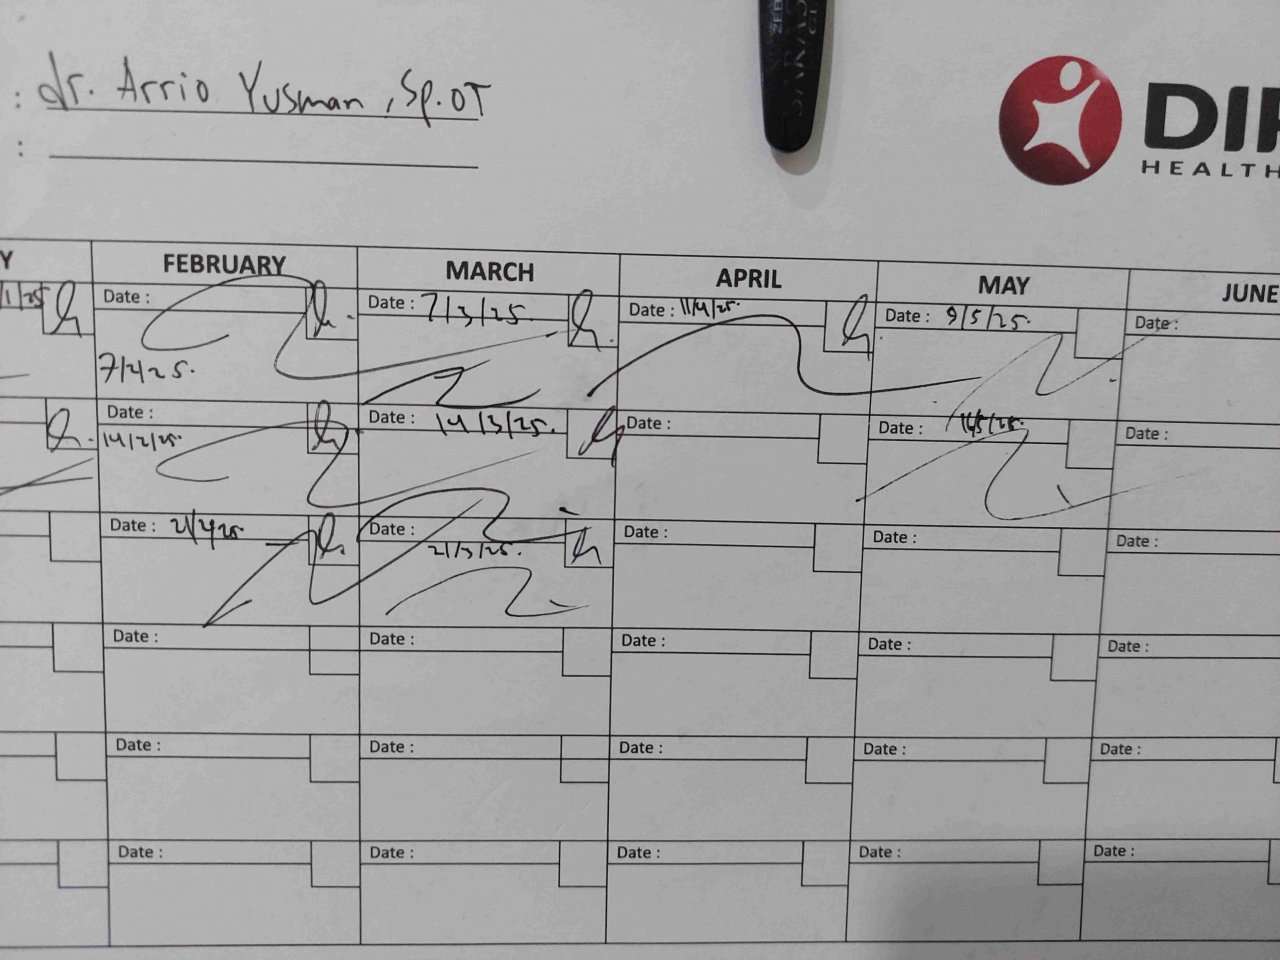 : dr. Arrio Yusman, Sp.OT
:
HEALTH
Y FEBRUARY MARCH APRIL MAY JUNE
/1/25 Date : Date : 7/3/25. Date : 11/4/25. Date : 9/5/25. Date :
7/2/25.
Date : Date : 14/3/25. Date : Date : Date :
14/2/25.
Date : 21/2/25. Date : Date : Date : Date :
21/3/25.
Date : Date : Date : Date : Date :
Date : Date : Date : Date : Date :
Date : Date : Date : Date : Date :